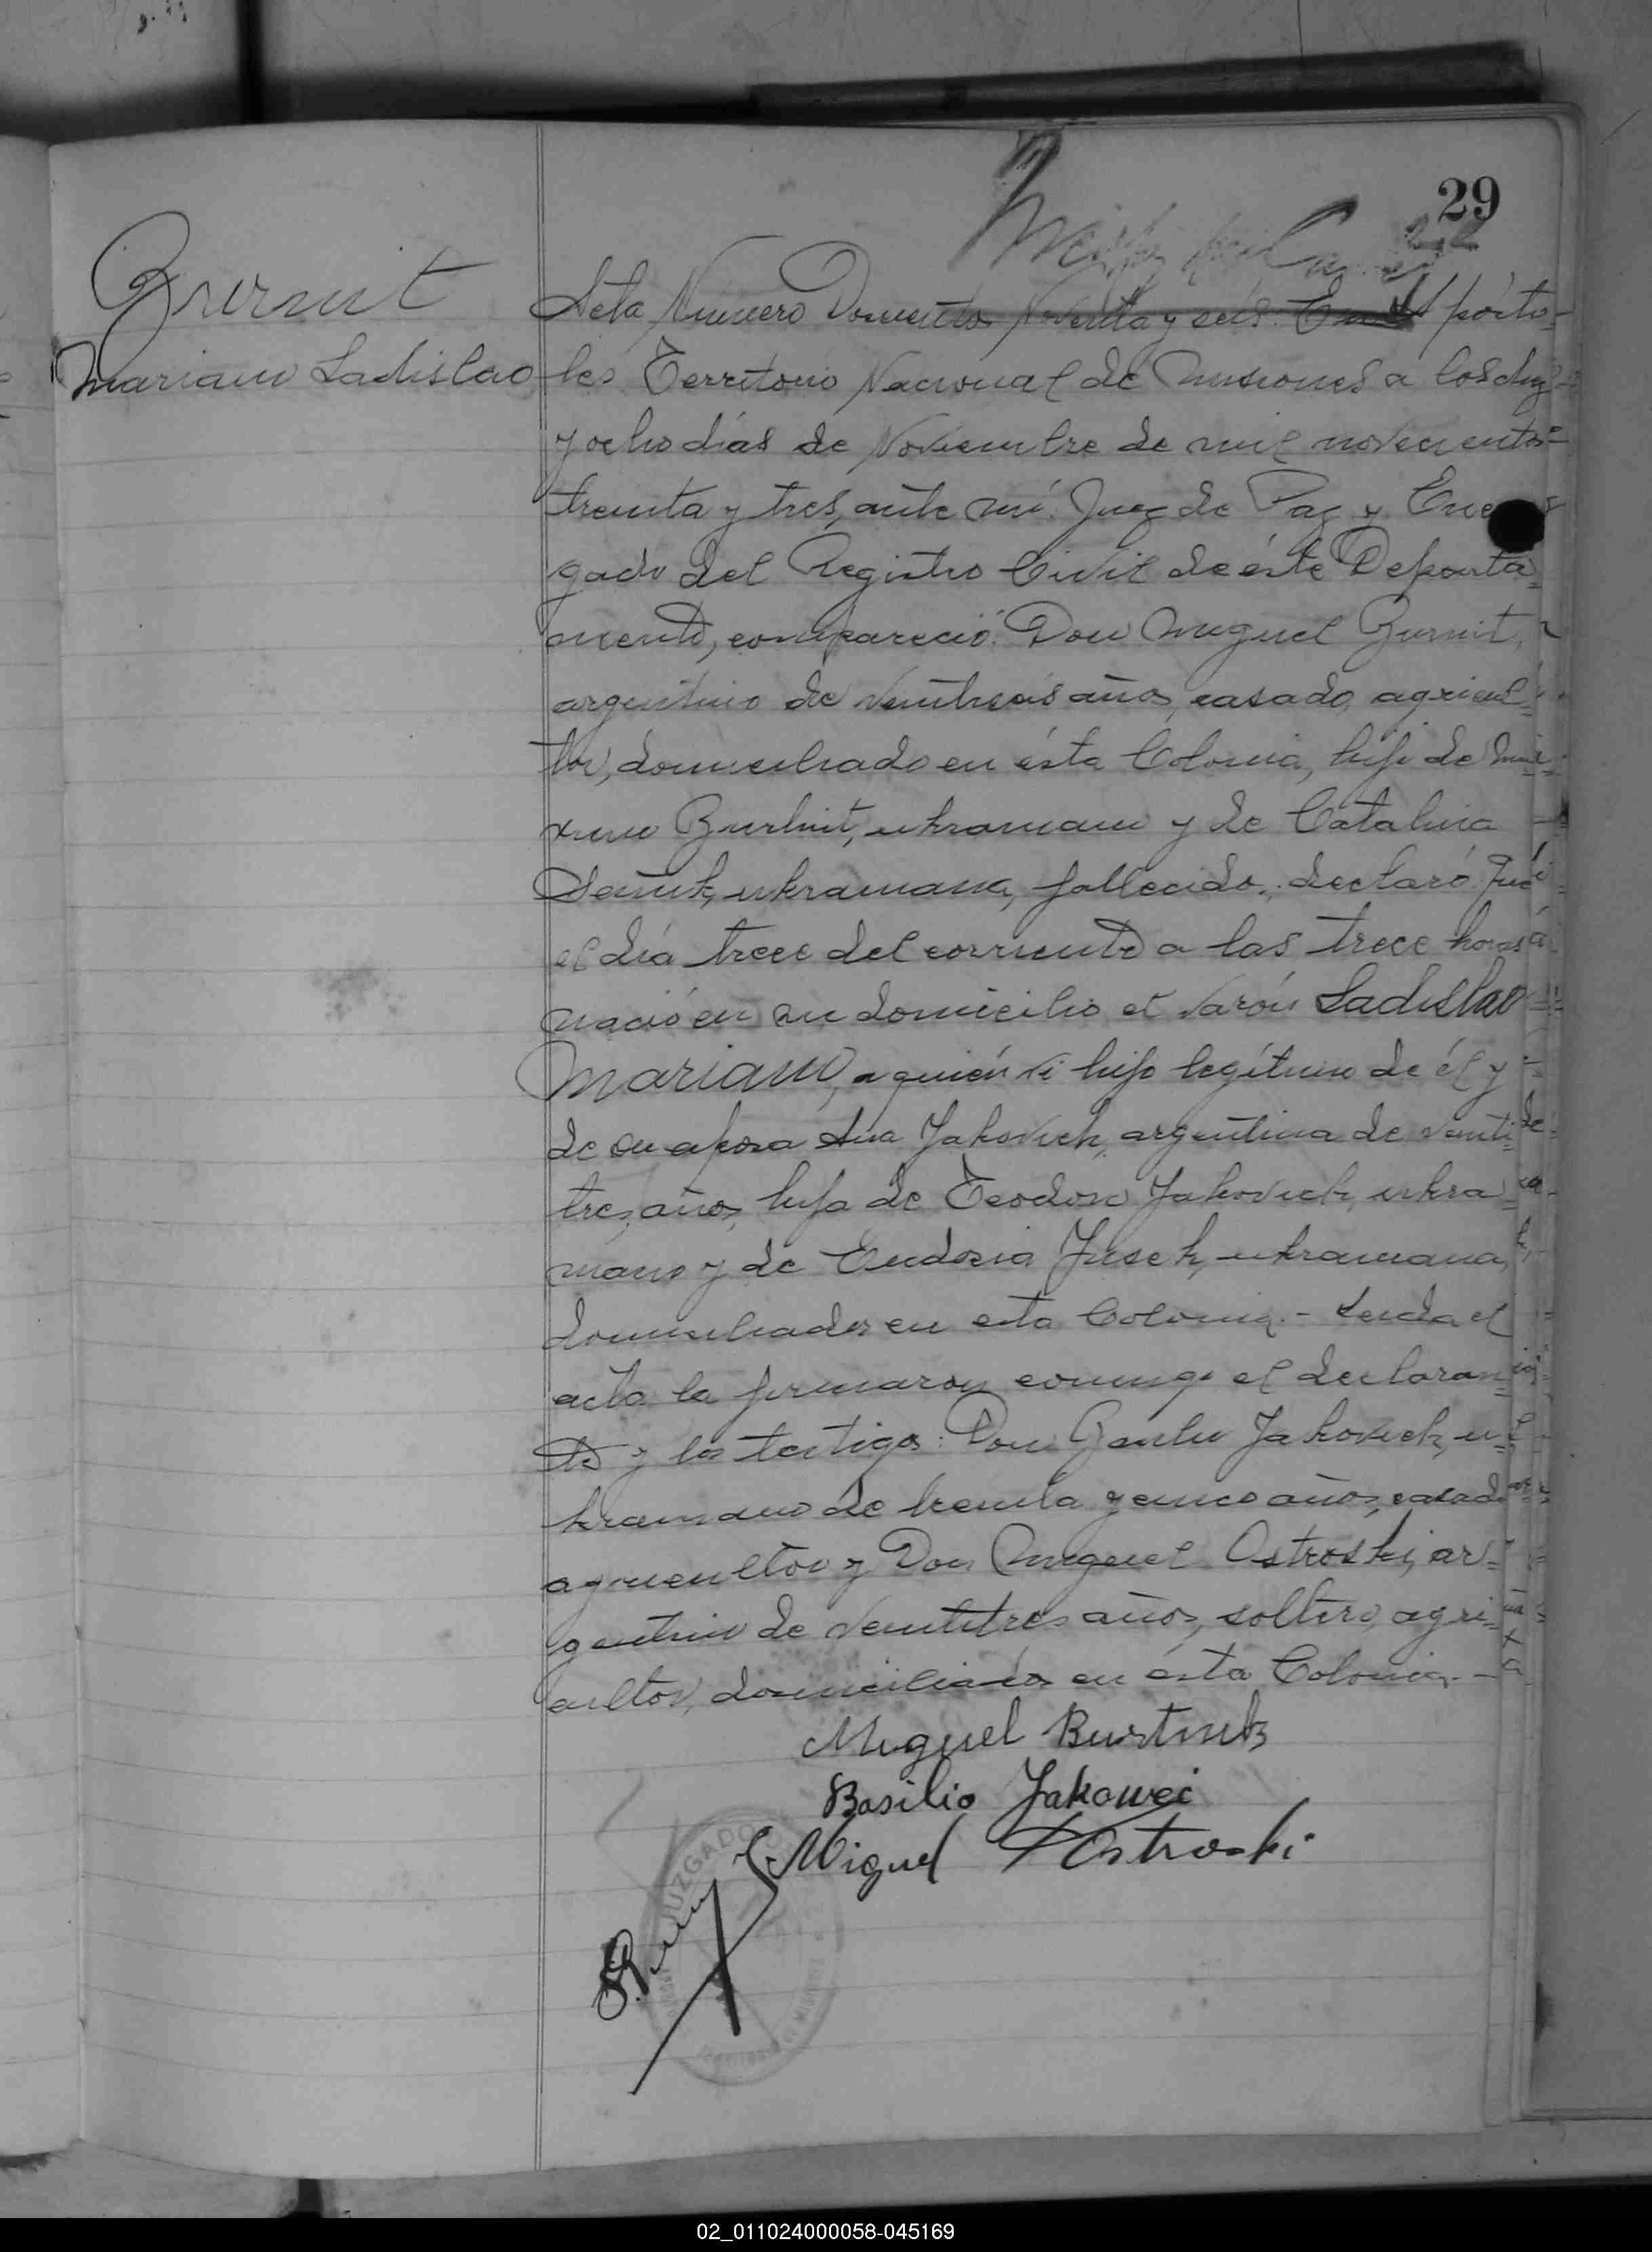 29
Burnit
Mariano Ladislao
Acta Número Doscientos Noventa y seis. En Apósto=
les Territorio Nacional de Misiones a los diez
y ocho días de Noviembre de mil novecientos
treinta y tres, ante mí: Juez de Paz y
gado del Registro Civil de éste Departa=
mento, compareció: Don Miguel Burnit,
argentino de veintiseis años, casado, agricul=
tor, domiciliado en ésta Colonia, hijo de
ximo ukraniano y de Catalina
ukraniana, fallecidos; declaró: Que
el día trece del corriente a las trece horas
nació en su domicilio el varón Ladislao
Mariano, a quién vi hijo legítimo de él y
de su esposa Ana Jakovich, argentina de veinti=
tres años, hija de Teodoro Jakovich, ukra=
niano y de Eudosia ukraniana,
domiciliados en esta Colonia.- Leida el
acta la firmaron conmigo el declaran=
te y los testigos: Don Jakovich, u=
kraniano de treinta y cinco años, casado
agricultor y Don Miguel Ostroski, ar=
gentino de veintitres años, soltero, agri=
cultor, domiciliados en ésta Colonia.-
Miguel Burtnik
Basilio Jakowec
Miguel Ostroski
JUZGADO
02_011024000058-045169